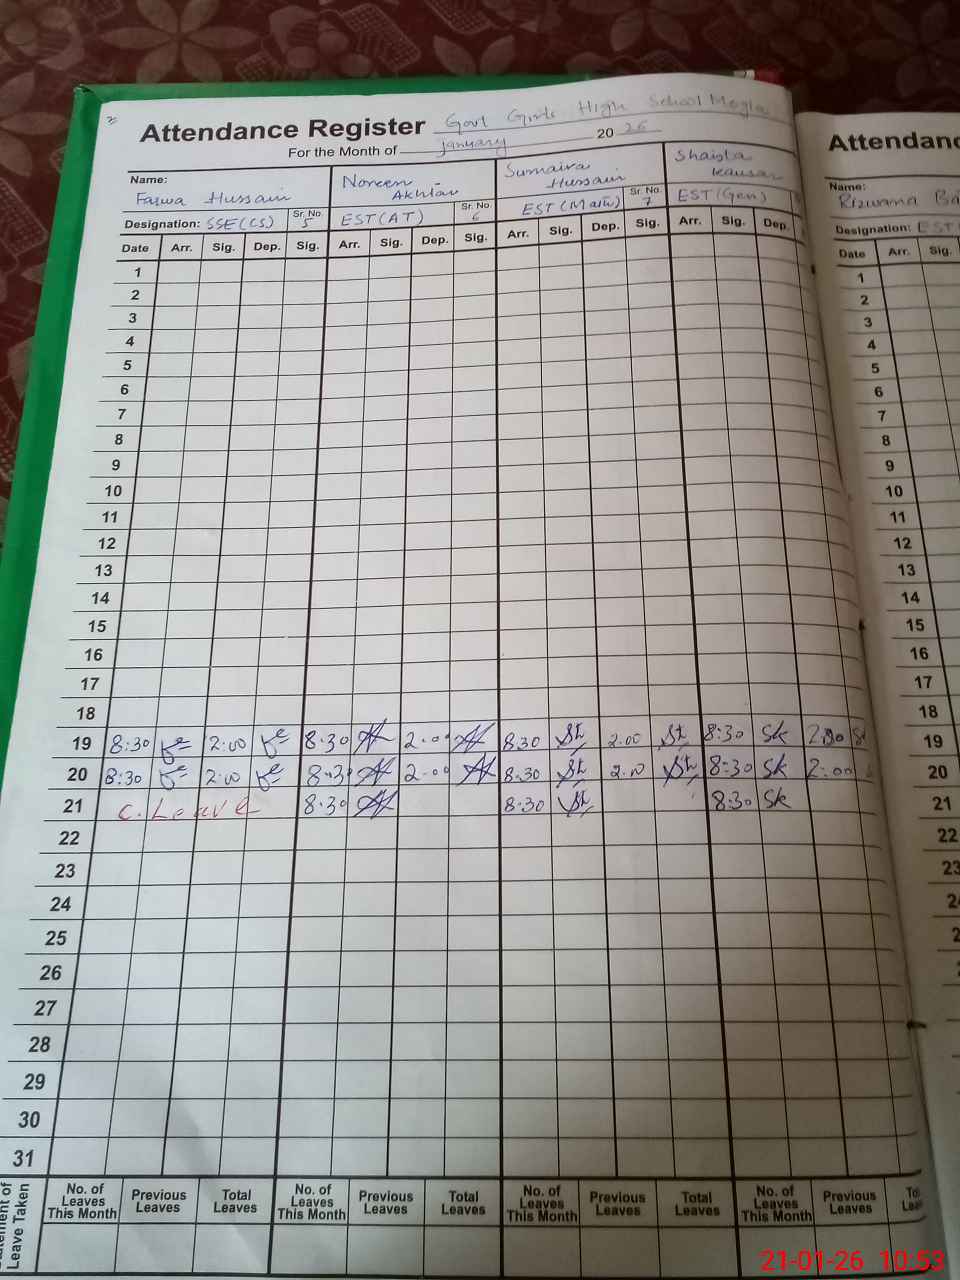 Attendance Register Govt Girls High School Mogla
For the Month of January 20 26
Name: Farwa Hussain
Noreen Akhtar
Sumaira Hussain
Shaista Kausar
Designation: SSE(CS) Sr. No. 5
EST(AT) Sr. No. 6
EST(Math) Sr. No. 7
EST(Gen)
Date Arr. Sig. Dep. Sig. Arr. Sig. Dep. Sig. Arr. Sig. Dep. Sig. Arr. Sig. Dep.
1
2
3
4
5
6
7
8
9
10
11
12
13
14
15
16
17
18
19 8:30 2:00 8:30 2:00 8:30 2:00 8:30 Sk
20 8:30 2:00 8:30 2:00 8:30 2:00 8:30 Sk 2:00
21 C. Leave 8:30 8:30 8:30 Sk
22
23
24
25
26
27
28
29
30
31
Leave Taken
No. of Leaves This Month Previous Leaves Total Leaves No. of Leaves This Month Previous Leaves Total Leaves No. of Leaves This Month Previous Leaves Total Leaves No. of Leaves This Month Previous Leaves
Name:
Rizwana
Designation: EST
Date Arr. Sig.
1
2
3
4
5
6
7
8
9
10
11
12
13
14
15
16
17
18
19
20
21
22
21-01-26 10:53